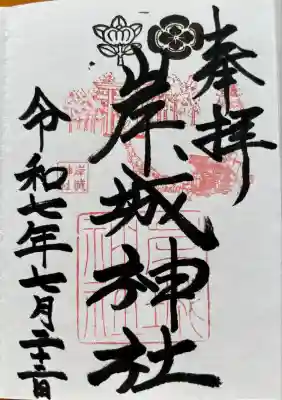 奉拝
岸城神社
令和七年七月二十三日